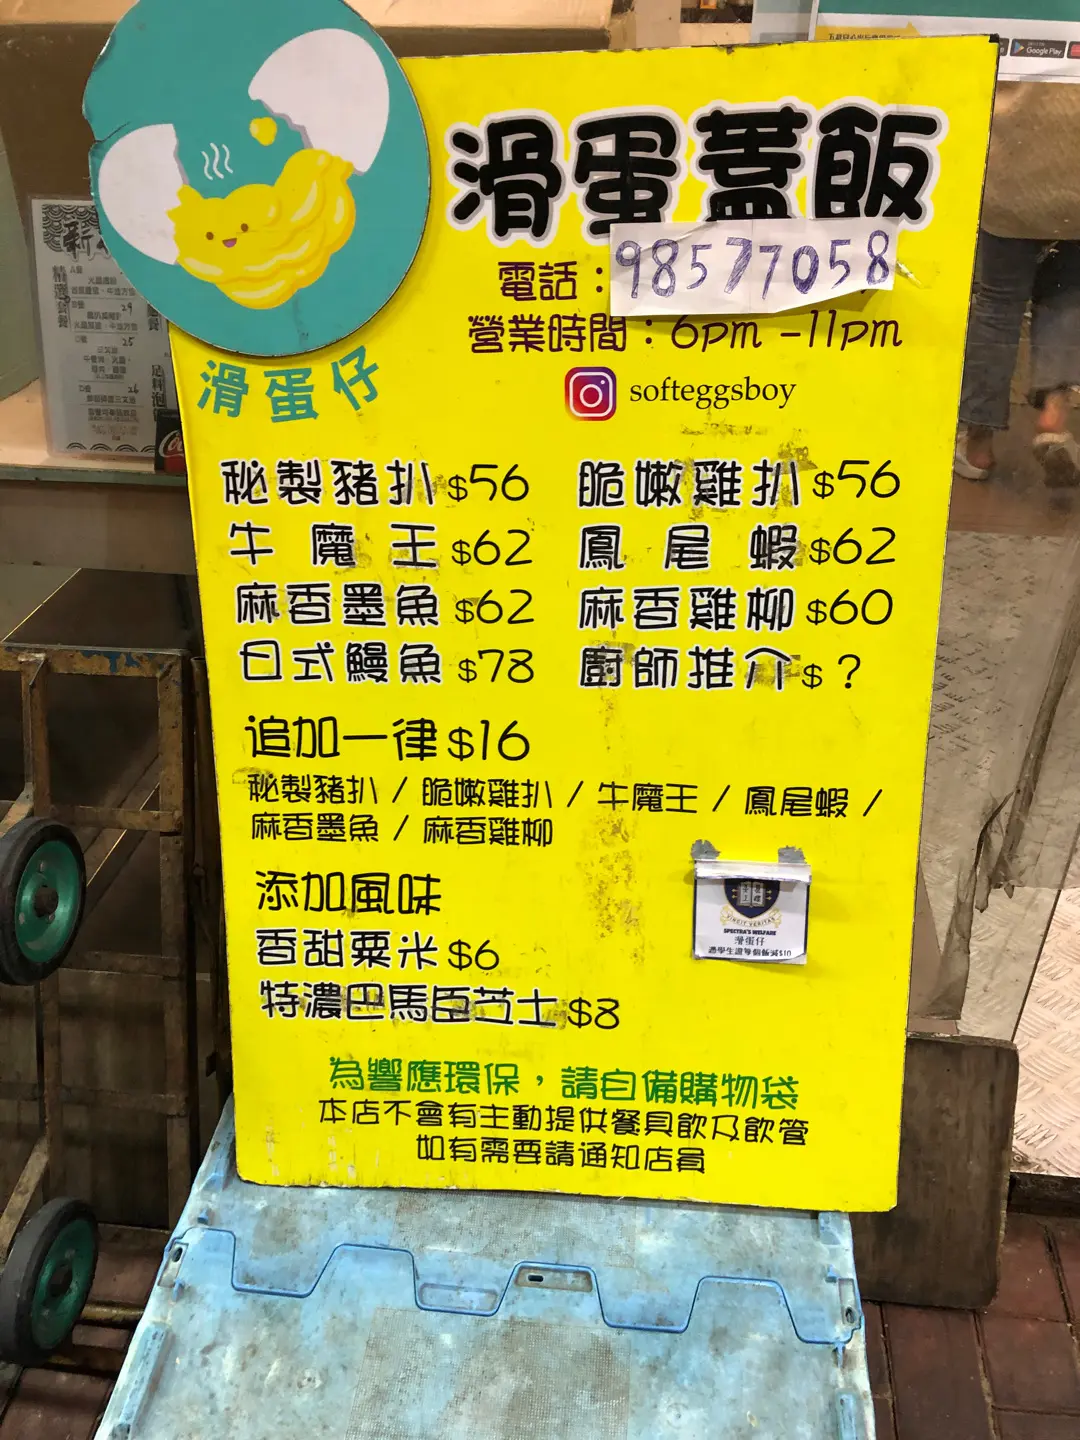 滑蛋蓋飯
電話：98577058
營業時間：6pm -11pm
softeggsboy
滑蛋仔
秘製豬扒 $56
脆嫩雞扒 $56
牛魔王 $62
鳳尾蝦 $62
麻香墨魚 $62
麻香雞柳 $60
日式鰻魚 $78
廚師推介 $ ?
追加一律 $16
秘製豬扒 / 脆嫩雞扒 / 牛魔王 / 鳳尾蝦 /
麻香墨魚 / 麻香雞柳
添加風味
香甜粟米 $6
特濃巴馬臣芝士 $8
SPECTRA'S WELFARE
滑蛋仔
憑學生證每個飯減$10
為響應環保，請自備購物袋
本店不會有主動提供餐具飲及飲管
如有需要請通知店員
Google Play